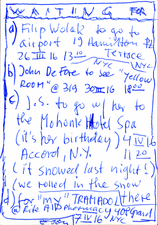 WAITING FOR
a) Filip Wolak to go to
airport 19 Hamilton
Terrace,
26 III 16 NYC
b) John DeFore to see "Yellow
ROOM" @ 319 30 III 16 18 00
c) J.S. to go w/ her to
the Mohonk Hotel Spa
(it's her birthday) 4 IV 16
Accord, N.Y. 4 20
(it snowed last night!)
(we rolled in the snow
d) for "my" TRAMADOL there
@ Rite AID pharmacy
7 IV 16 NYC